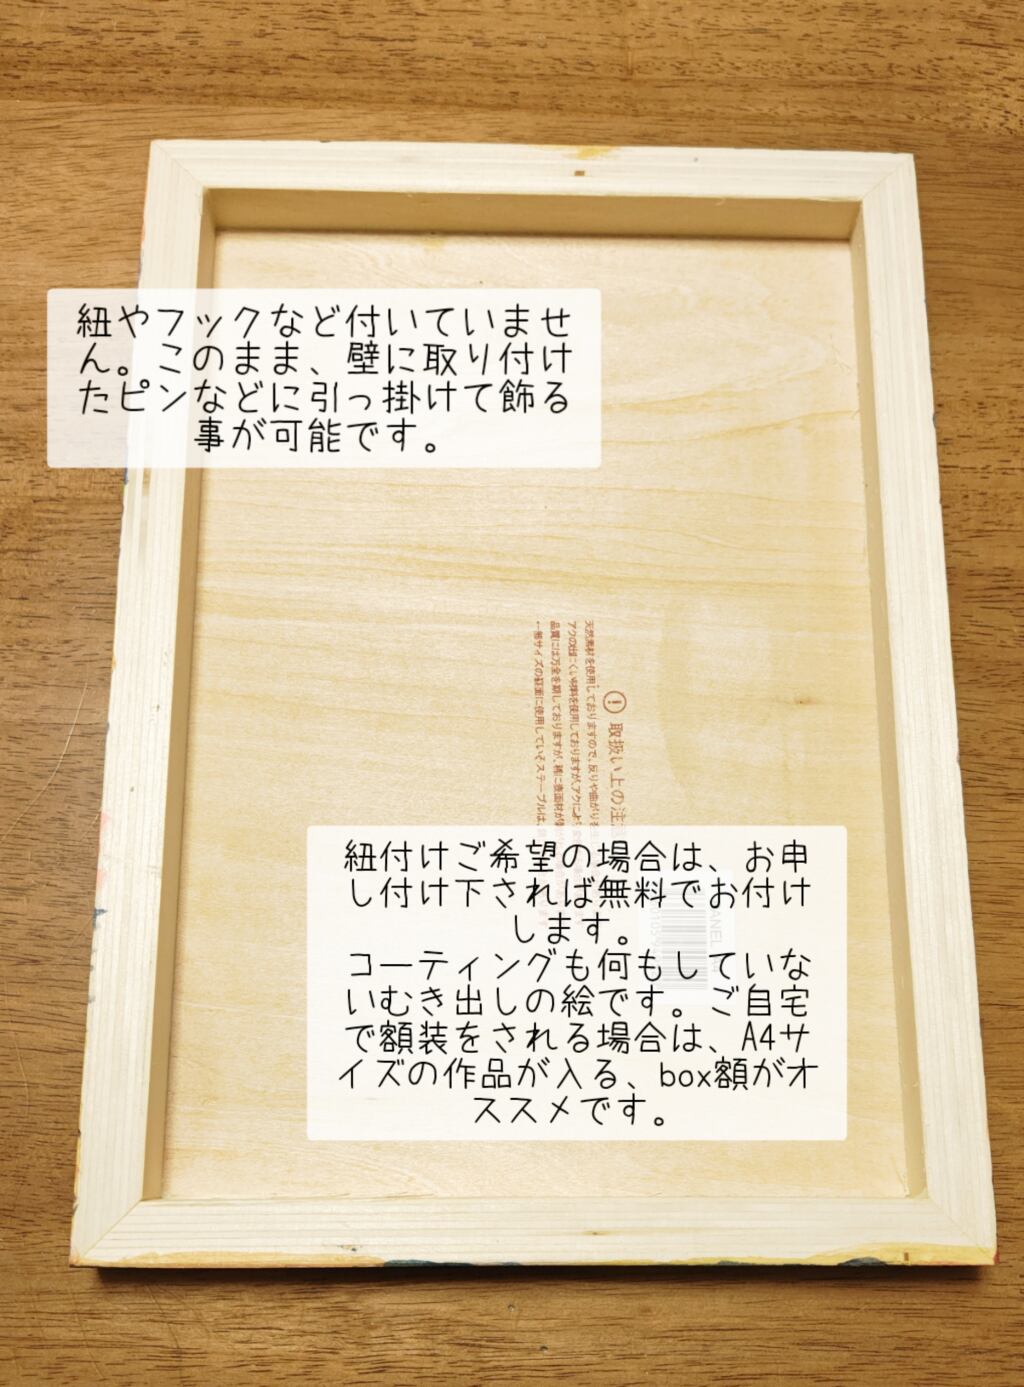 紐やフックなど付いていませ
ん。このまま、壁に取り付け
たピンなどに引っ掛けて飾る
事が可能です。
取扱い上の注
天然素材を使用しておりますので、反りや曲がりを
アクの出にくい材料を使用しておりますが、アクにより
品質には万全を期しておりますが、稀に表面材が
紐付けご希望の場合は、お申
し付け下されば無料でお付け
します。
コーティングも何もしていな
いむき出しの絵です。ご自宅
で額装をされる場合は、A4サ
イズの作品が入る、box額がオ
ススメです。